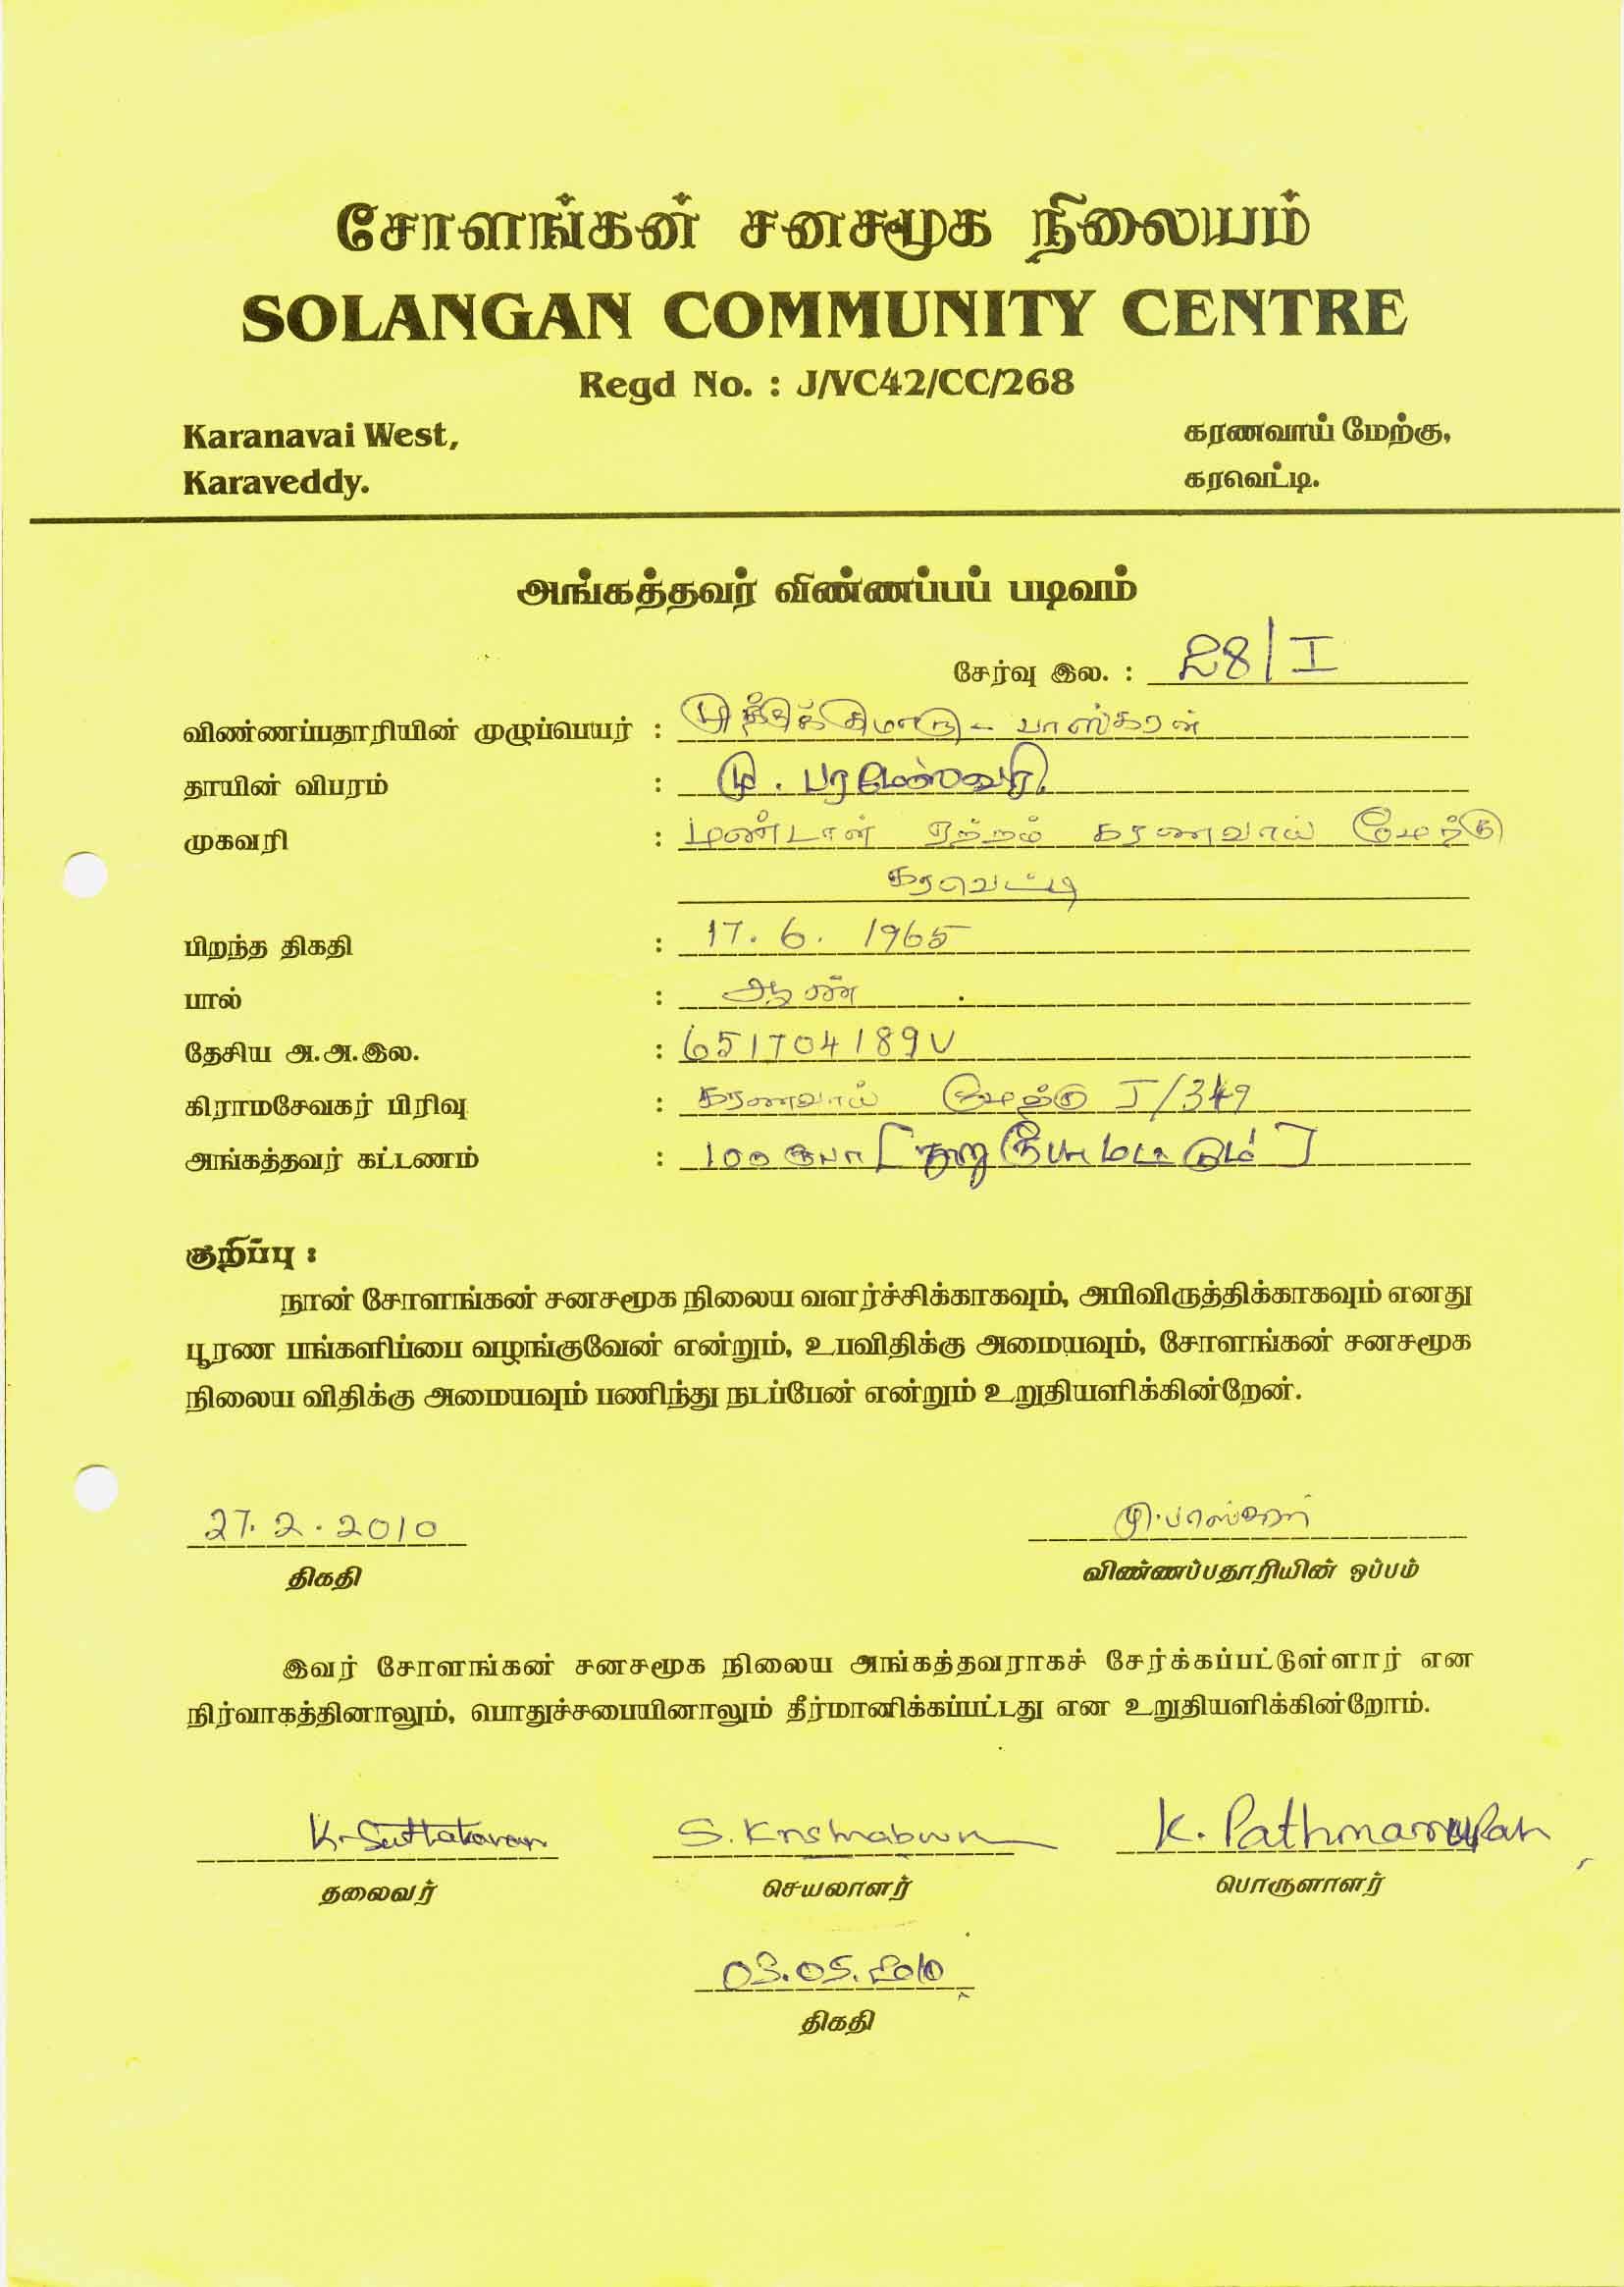 சோளங்கன் சனசமூக நிலையம்
SOLANGAN COMMUNITY CENTRE
Regd No. : J/VC42/CC/268
Karanavai West, கரணவாய் மேற்கு,
Karaveddy. கரவெட்டி.
அங்கத்தவர் விண்ணப்பப் படிவம்
சேர்வு இல. : 28/I
விண்ணப்பதாரியின் முழுப்பெயர் : முத்துக்குமாரு - பாஸ்கரன்
தாயின் விபரம் : மு. பரமேஸ்வரி
முகவரி : மண்டான் ஏற்றம் கரணவாய் மேற்கு
கரவெட்டி
பிறந்த திகதி : 17. 6. 1965
பால் : ஆண்
தேசிய அ.அ.இல. : 651704189V
கிராமசேவகர் பிரிவு : கரணவாய் மேற்கு J/349
அங்கத்தவர் கட்டணம் : 100 ரூபா [நூறு ரூபா மட்டும்]
குறிப்பு :
நான் சோளங்கன் சனசமூக நிலைய வளர்ச்சிக்காகவும், அபிவிருத்திக்காகவும் எனது
பூரண பங்களிப்பை வழங்குவேன் என்றும், உபவிதிக்கு அமையவும், சோளங்கன் சனசமூக
நிலைய விதிக்கு அமையவும் பணிந்து நடப்பேன் என்றும் உறுதியளிக்கின்றேன்.
27. 2. 2010 மு. பாஸ்கரன்
திகதி விண்ணப்பதாரியின் ஒப்பம்
இவர் சோளங்கன் சனசமூக நிலைய அங்கத்தவராகச் சேர்க்கப்பட்டுள்ளார் என
நிர்வாகத்தினாலும், பொதுச்சபையினாலும் தீர்மானிக்கப்பட்டது என உறுதியளிக்கின்றோம்.
K. S. K. Pathmanapan
தலைவர் செயலாளர் பொருளாளர்
03.05.2010
திகதி